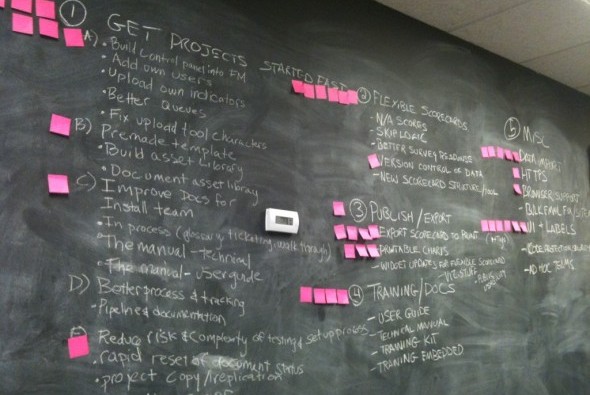 ① GET PROJECTS STARTED FAST
A) • Build control panel into FM
• Add own users
• Upload own indicators
• Better Queues
• Fix upload tool characters
B) Premade template
• Build asset library
• Document asset library
C) Improve Docs for
Install team
• In process (glossary, ticketing, walk through)
• The manual - technical
• The manual - userguide
D) Better process & tracking
• Pipeline & documentation
E) Reduce risk & complexity of testing & setup process
• rapid reset of document status
• project copy/replication
② FLEXIBLE SCORECARDS
- N/A SCORES
- SKIP LOGIC
- BETTER SURVEY RESPONSE
VERSION CONTROL OF DATA
- NEW SCORECARD STRUCTURE
③ PUBLISH / EXPORT
EXPORT SCORECARD TO PRINT
PRINTABLE CHARTS
- WIDGET UPDATES FOR FLEXIBLE SCORECARD
④ TRAINING/DOCS
- USER GUIDE
- TECHNICAL MANUAL
- TRAINING KIT
- TRAINING EMBEDDED
⑤ MISC
DATA IMPORT
HTTPS
BROWSER SUPPORT
UI - LABELS